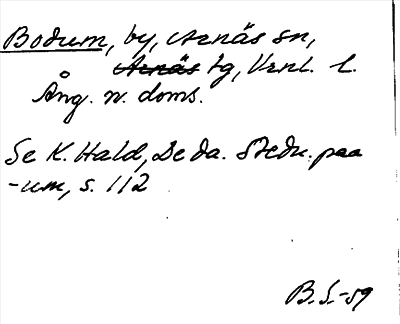 Bodum, by, Arnäs sn,
Arnäs tg, Vrnl. l.
Ång. n. doms.
Se K. Hald, De da. Stedn. paa
-um, s. 112
B.S.-59